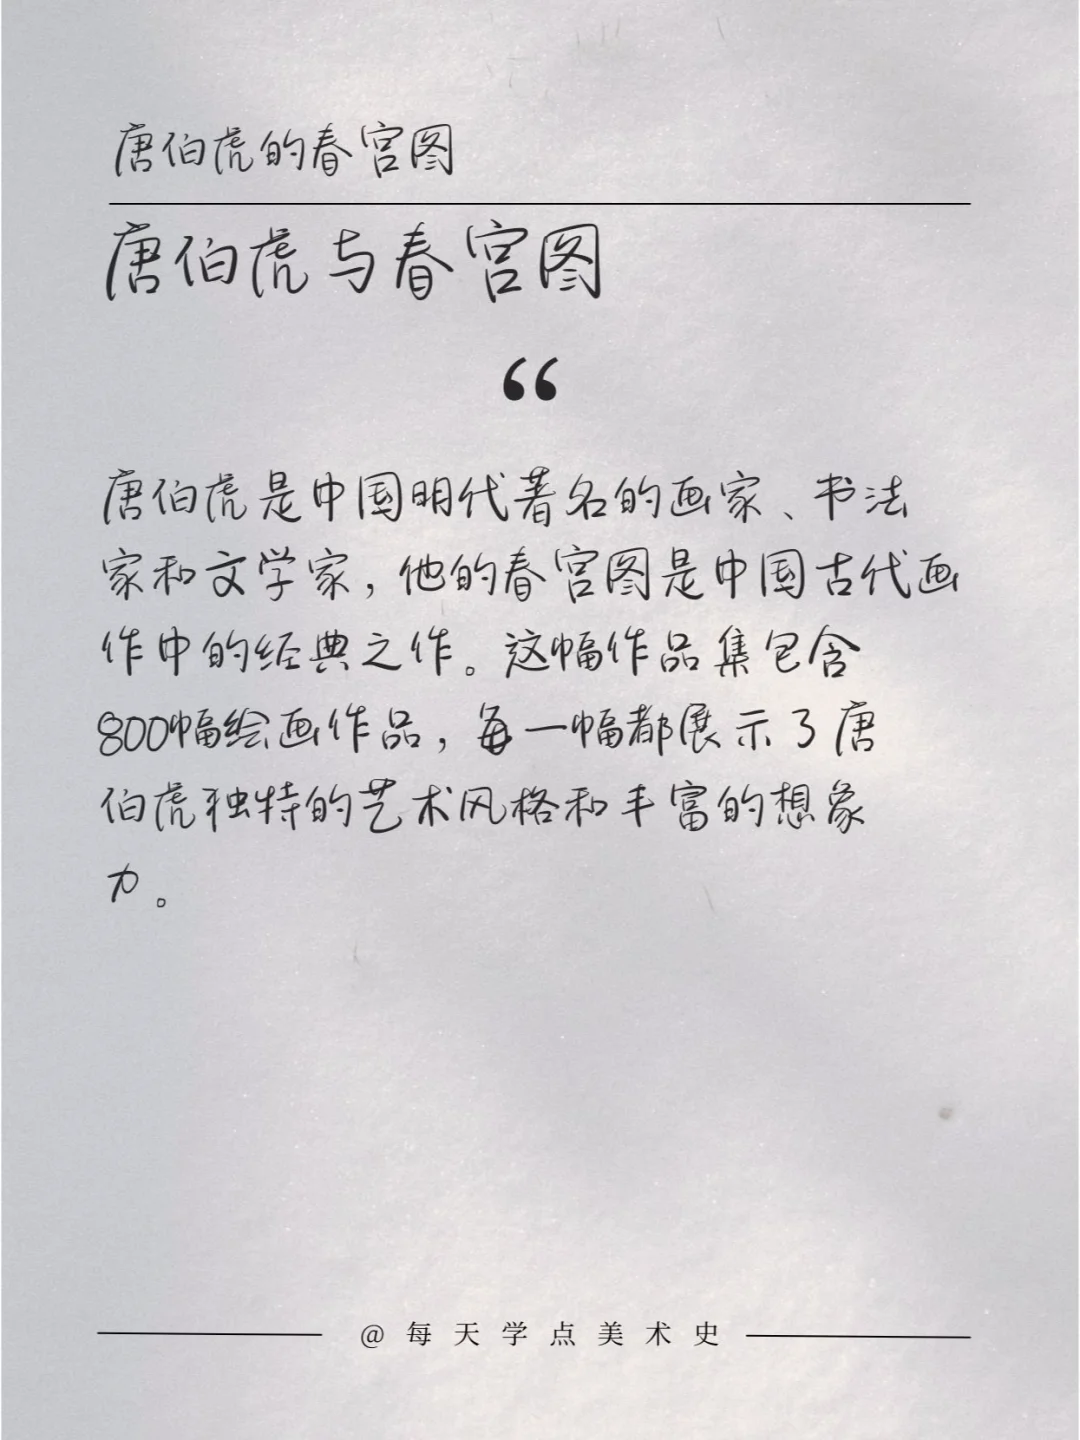 唐伯虎的春宫图
唐伯虎与春宫图
“
唐伯虎是中国明代著名的画家、书法
家和文学家，他的春宫图是中国古代画
作中的经典之作。这幅作品集包含
800幅绘画作品，每一幅都展示了唐
伯虎独特的艺术风格和丰富的想象
力。
@每天学点美术史